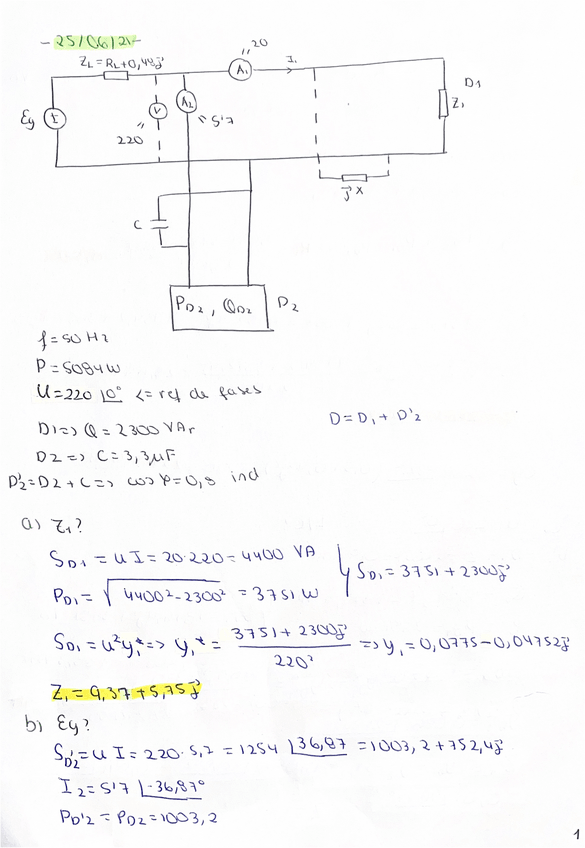 - 25/06/21-
ZL = RL+0,48j
20
A1
I1
D1
Z1
Eg
V
A2
5'7
220
jX
C
PD2, QD2
D2
f = 50 Hz
P = 5084 W
U = 220 |0° <= ref de fases
D = D1 + D'2
D1 => Q = 2300 VAr
D2 => C = 3,3μF
D'2 = D2 + C => cos φ = 0,8 ind
a) Z1?
SD1 = U I = 20·220 = 4400 VA
SD1 = 3751 + 2300j
PD1 = √4400²-2300² = 3751 W
SD1 = U² y1* => y1* = 3751 + 2300j / 220² => y1 = 0,0775 - 0,04752j
Z1 = 9,37 + 5,75j
b) Eg?
SD'2 = U I = 220 · 5,7 = 1254 |36,87 = 1003,2 + 752,4j
I2 = 5'7 |-36,87°
PD'2 = PD2 = 1003,2
1